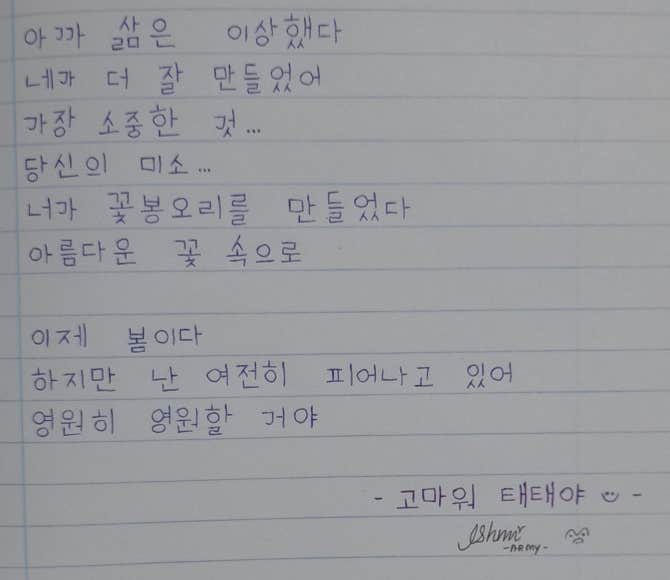 아까 삶은 이상했다
네가 더 잘 만들었어
가장 소중한 것...
당신의 미소...
너가 꽃봉오리를 만들었다
아름다운 꽃 속으로
이제 봄이다
하지만 난 여전히 피어나고 있어
영원히 영원할 거야
- 고마워 태태야 -
-ARMY-